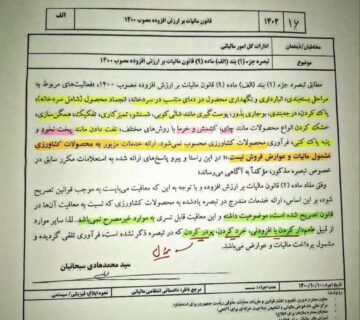 الف
قانون مالیات بر ارزش افزوده مصوب ۱۴۰۰
۱۴۰۲
۱۶
مخاطبان/ذینفعان
ادارات کل امور مالیاتی
موضوع
تبصره جزء (۱) بند (الف) ماده (۹) قانون مالیات بر ارزش افزوده مصوب ۱۴۰۰
مطابق تبصره جزء (۱) بند (الف) ماده (۹) قانون مالیات بر ارزش افزوده مصوب ۱۴۰۰، «فعالیت‌های مربوط به
مراحل بسته‌بندی، انبارداری و نگهداری محصول در دمای مناسب در سردخانه، انجماد محصول (شامل سردخانه)،
پاک کردن، درجه‌بندی، پوست‌گیری مانند شالی کوبی، شستشو، تمیز کاری، تفکیک، همگن‌سازی،
خشک کردن انواع محصولات مانند چای، کشمش و خرما با روش‌های مختلف، تفت دادن مانند پخت نخود و
پنبه پاک کنی، فرآوری محصولات کشاورزی محسوب نمی‌شود. ارائه خدمات مزبور به محصولات کشاورزی
مشمول مالیات و عوارض فروش نیست.» در این راستا و پیرو پاسخ‌های ارائه شده به استعلامات مکرر سابق در
خصوص تبصره مذکور، مؤکداً به آگاهی می‌رساند:
وفق مفاد ماده (۲) قانون مالیات بر ارزش افزوده و با توجه به این که معافیت می‌بایست به موجب قوانین تصریح
شود، بر این اساس، ارائه خدمات مندرج در تبصره یادشده به محصولات کشاورزی که نسبت به معافیت آن‌ها در
قانون تصریح شده است، موضوعیت داشته و این معافیت قابل تسری به موارد غیرمصرح نمی‌باشد. لذا سایر موارد
از قبیل طعم‌دار کردن با افزودنی، خرد کردن، پودر کردن که در تبصره ذکر نشده است، فرآوری تلقی گردیده و
مشمول پرداخت مالیات و عوارض می‌باشد.
سید محمدهادی سبحانیان
تاریخ اجراء:
مدت اجراء:
مرجع ناظر: دادستانی انتظامی مالیاتی
نحوه ابلاغ: فیزیکی/سیستمی